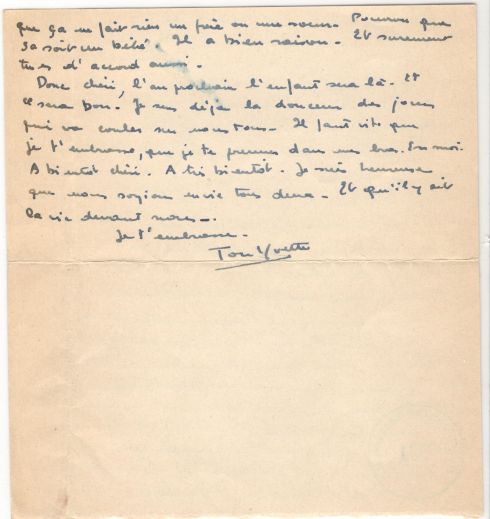 que ça ne fait rien un frère ou une sœur. Pourvu que
ça soit un bébé. Il a bien raison. Et surement
tu es d'accord aussi.
Donc chéri, l'an prochain l'enfant sera là. Et
ce sera bon. Je sens déjà la douceur des jours
qui va couler sur nous tous. Il faut vite que
je t'embrasse, que je te prenne dans mes bras. En moi.
A bientôt chéri. A très bientôt. Je suis heureuse
que nous soyions en vie tous deux. Et qu'il y ait
la vie devant nous.
Je t'embrasse.
Ton Yvette